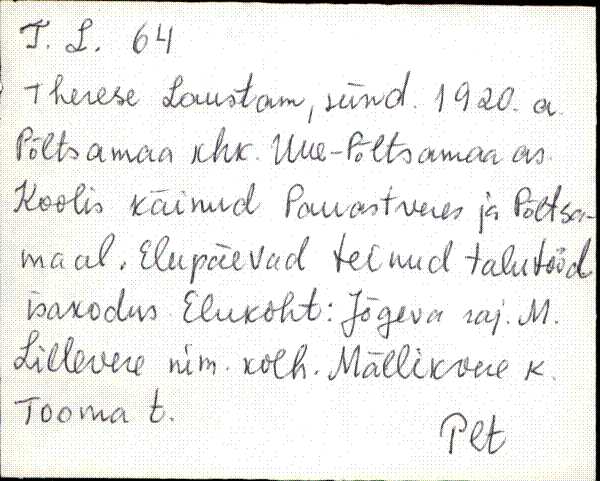 T. L. 64
Therese Laustam, sünd. 1920. a.
Põltsamaa khk. Uue-Põltsamaa as.
Koolis käinud Pauastveres ja Põltsa-
maal. Elupäevad teinud talutööd
isakodus. Elukoht: Jõgeva raj. M.
Lillevere nim. kolh. Mällikvere k.
Tooma t.
Plt